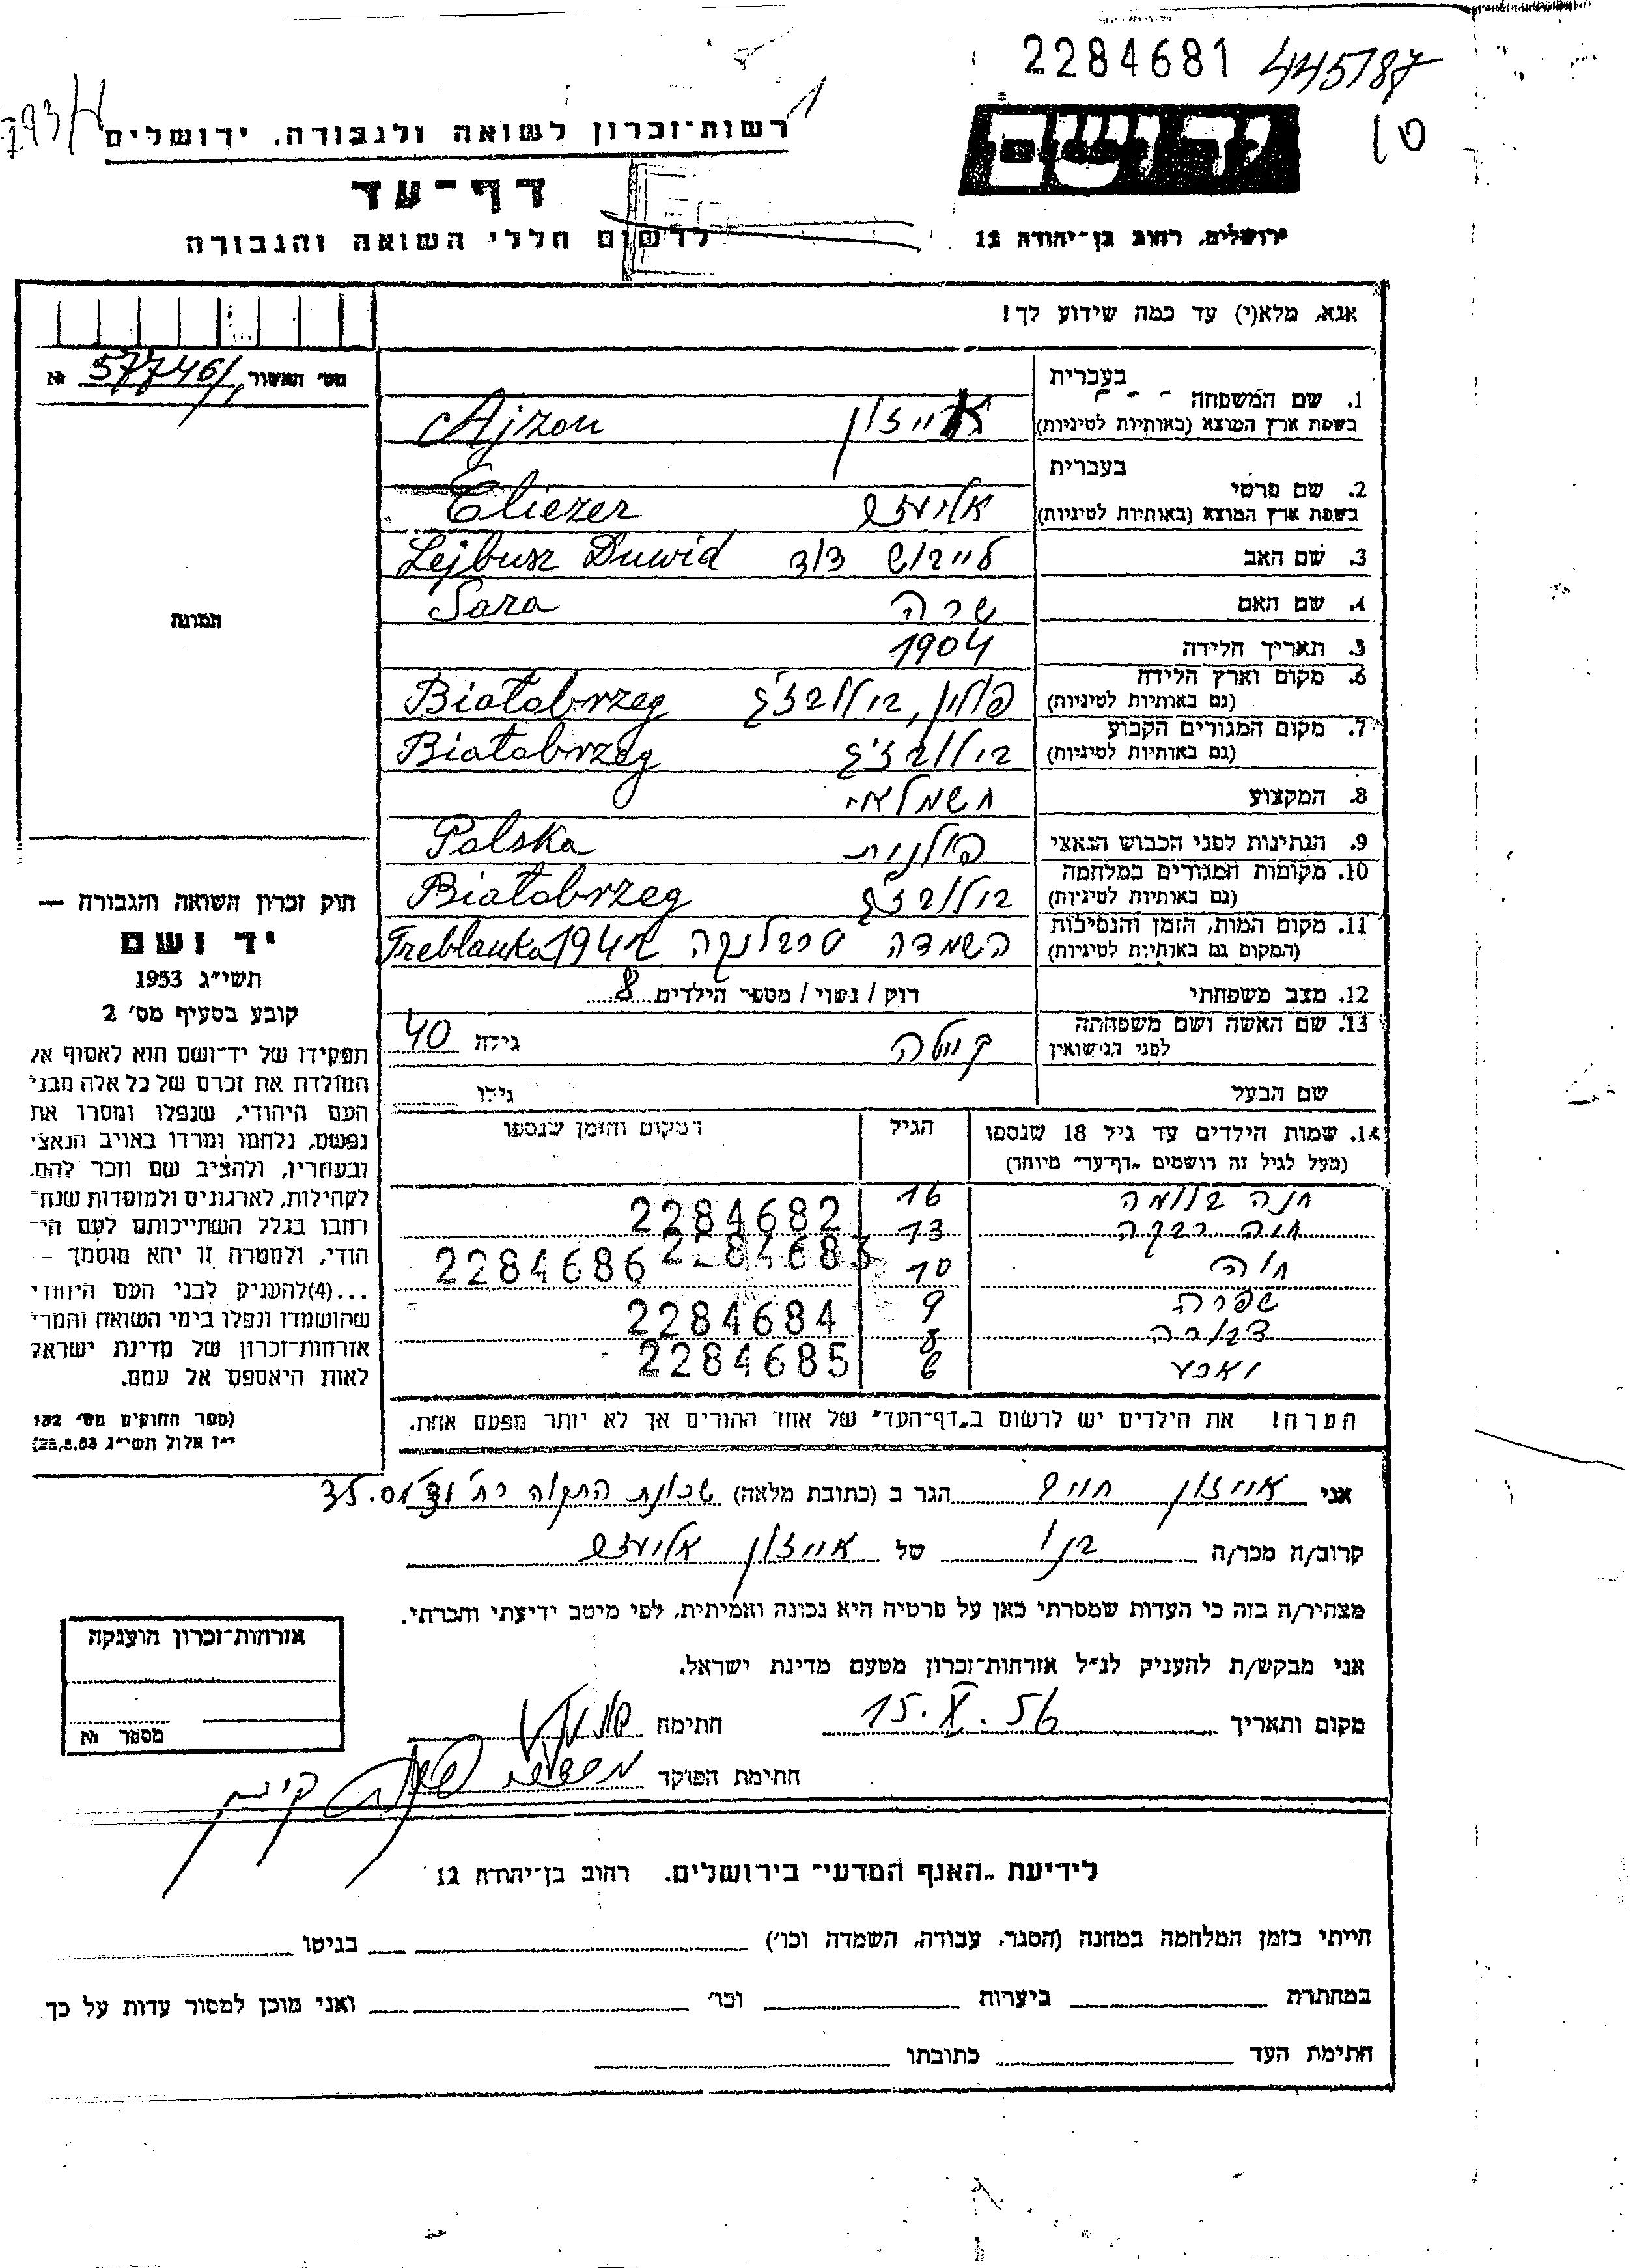 2284681 445/87
10
793/H
1
רשות־זכרון לשואה ולגבורה, ירושלים
יד ושם
דף־עד
לרשום חללי השואה והגבורה
ירושלים, רחוב בן־יהודה 12
אנא, מלא(י) עד כמה שידוע לך!
מס׳ האשור 577461 №
בעברית
1. שם המשפחה
בשפת ארץ המוצא (באותיות לטיניות) אייזון Ajzon
בעברית
2. שם פרטי
בשפת ארץ המוצא (באותיות לטיניות) אליעזר Eliezer
3. שם האב לייבוש דוד Lejbusz Duwid
4. שם האם שרה Sara
5. תאריך הלידה 1904
6. מקום וארץ הלידה
(גם באותיות לטיניות) פולין, Białobrzeg
7. מקום המגורים הקבוע
(גם באותיות לטיניות) Białobrzeg
8. המקצוע חשמלאי
9. הנתינות לפני הכבוש הנאצי פולנית Polska
10. מקומות המגורים במלחמה
(גם באותיות לטיניות) Białobrzeg
11. מקום המות, הזמן והנסיבות
(המקום גם באותיות לטיניות) השמדה טרבלנקה Treblanka 1942
12. מצב משפחתי רוק / נשוי / מספר הילדים 8
13. שם האשה ושם משפחתה
לפני הנישואין קיילה גילה 40
שם הבעל גילו
14. שמות הילדים עד גיל 18 שנספו
(מעל לגיל זה רושמים „דף־עד” מיוחד)
הגיל
המקום והזמן שנספו
חנה בלומה 16 2284682
חוה רבקה 13 2284683
חוה 10 2284686
שפרה 9 2284684
דבורה 8
6 2284685
הערה! את הילדים יש לרשום ב„דף־העד” של אחד ההורים אך לא יותר מפעם אחת.
תמונה
חוק זכרון השואה והגבורה —
יד ושם
תשי״ג 1953
קובע בסעיף מס׳ 2
תפקידו של יד־ושם הוא לאסוף אל
המולדת את זכרם של כל אלה מבני
העם היהודי, שנפלו ומסרו את
נפשם, נלחמו ומרדו באויב הנאצי
ובעוזריו, ולהציב שם וזכר להם,
לקהילות, לארגונים ולמוסדות שנח־
רחבו בגלל השתייכותם לעם הי־
הודי, ולמטרה זו יהא מוסמך —
...(4)להעניק לבני העם היהודי
שהושמדו ונפלו בימי השואה והמרי
אזרחות־זכרון של מדינת ישראל
לאות היאספם אל עמם.
(ספר החוקים מס׳ 132
י״ז אלול תשי״ג 28.8.53)
אני אייזון הגר ב (כתובת מלאה) שכונת התקוה רח׳
קרוב/ה מכר/ה בנו של אייזון אליעזר
מצהיר/ה בזה כי העדות שמסרתי כאן על פרטיה היא נכונה ואמיתית, לפי מיטב ידיעתי והכרתי.
אני מבקש/ת להעניק לנ״ל אזרחות־זכרון מטעם מדינת ישראל.
מקום ותאריך 15.X.56 חתימה
חתימת הפוקד
אזרחות־זכרון הוענקה
מספר №
לידיעת „האגף המדעי” בירושלים. רחוב בן־יהודה 12
הייתי בזמן המלחמה במחנה (הסגר, עבודה, השמדה וכו׳) בגיטו
במחתרת ביערות וכו׳ ואני מוכן למסור עדות על כך
חתימת העד כתובתו